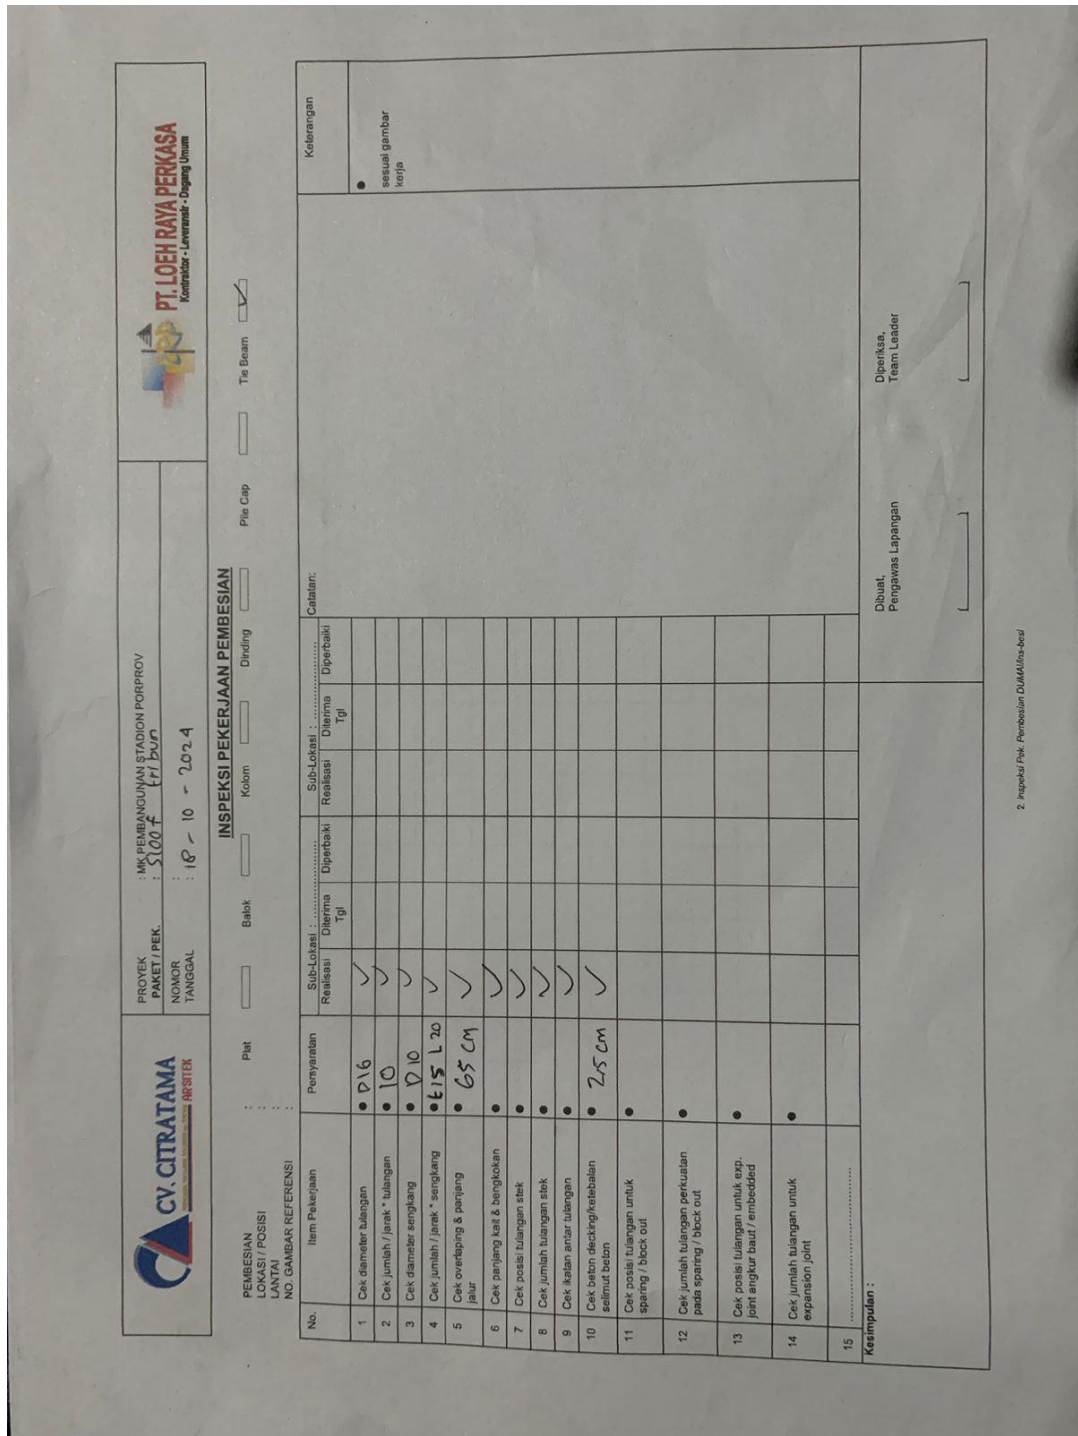 CV. CITRATAMA
ARSITEK
PROYEK : MK PEMBANGUNAN STADION PORPROV
PAKET / PEK. : Sloof tribun
NOMOR :
TANGGAL : 18 - 10 - 2024
PT. LOEH RAYA PERKASA
Kontraktor - Leveransir - Dagang Umum
INSPEKSI PEKERJAAN PEMBESIAN
PEMBESIAN : Plat Balok Kolom Dinding Pile Cap Tie Beam ✓
LOKASI / POSISI :
LANTAI :
NO. GAMBAR REFERENSI :
No. Item Pekerjaan Persyaratan Sub-Lokasi : .................... Sub-Lokasi : .................... Catatan: Keterangan
Realisasi Diterima Tgl Diperbaiki Realisasi Diterima Tgl Diperbaiki
1 Cek diameter tulangan • D16 ✓
2 Cek jumlah / jarak * tulangan • 10 ✓
3 Cek diameter sengkang • D10 ✓
4 Cek jumlah / jarak * sengkang • t15 L20 ✓
5 Cek overlaping & panjang • 65 CM ✓
jalur
6 Cek panjang kait & bengkokan • ✓
7 Cek posisi tulangan stek • ✓
8 Cek jumlah tulangan stek • ✓
9 Cek ikatan antar tulangan • ✓
10 Cek beton decking/ketebalan • 2,5 CM ✓
selimut beton
11 Cek posisi tulangan untuk •
sparing / block out
12 Cek jumlah tulangan perkuatan •
pada sparing / block out
13 Cek posisi tulangan untuk exp. •
joint angkur baut / embedded
14 Cek jumlah tulangan untuk •
expansion joint
15 ........................................
• sesuai gambar
kerja
Kesimpulan :
Dibuat,
Pengawas Lapangan
Diperiksa,
Team Leader
2. Inspeksi Pek. Pembesian DUMAI/ins-besi